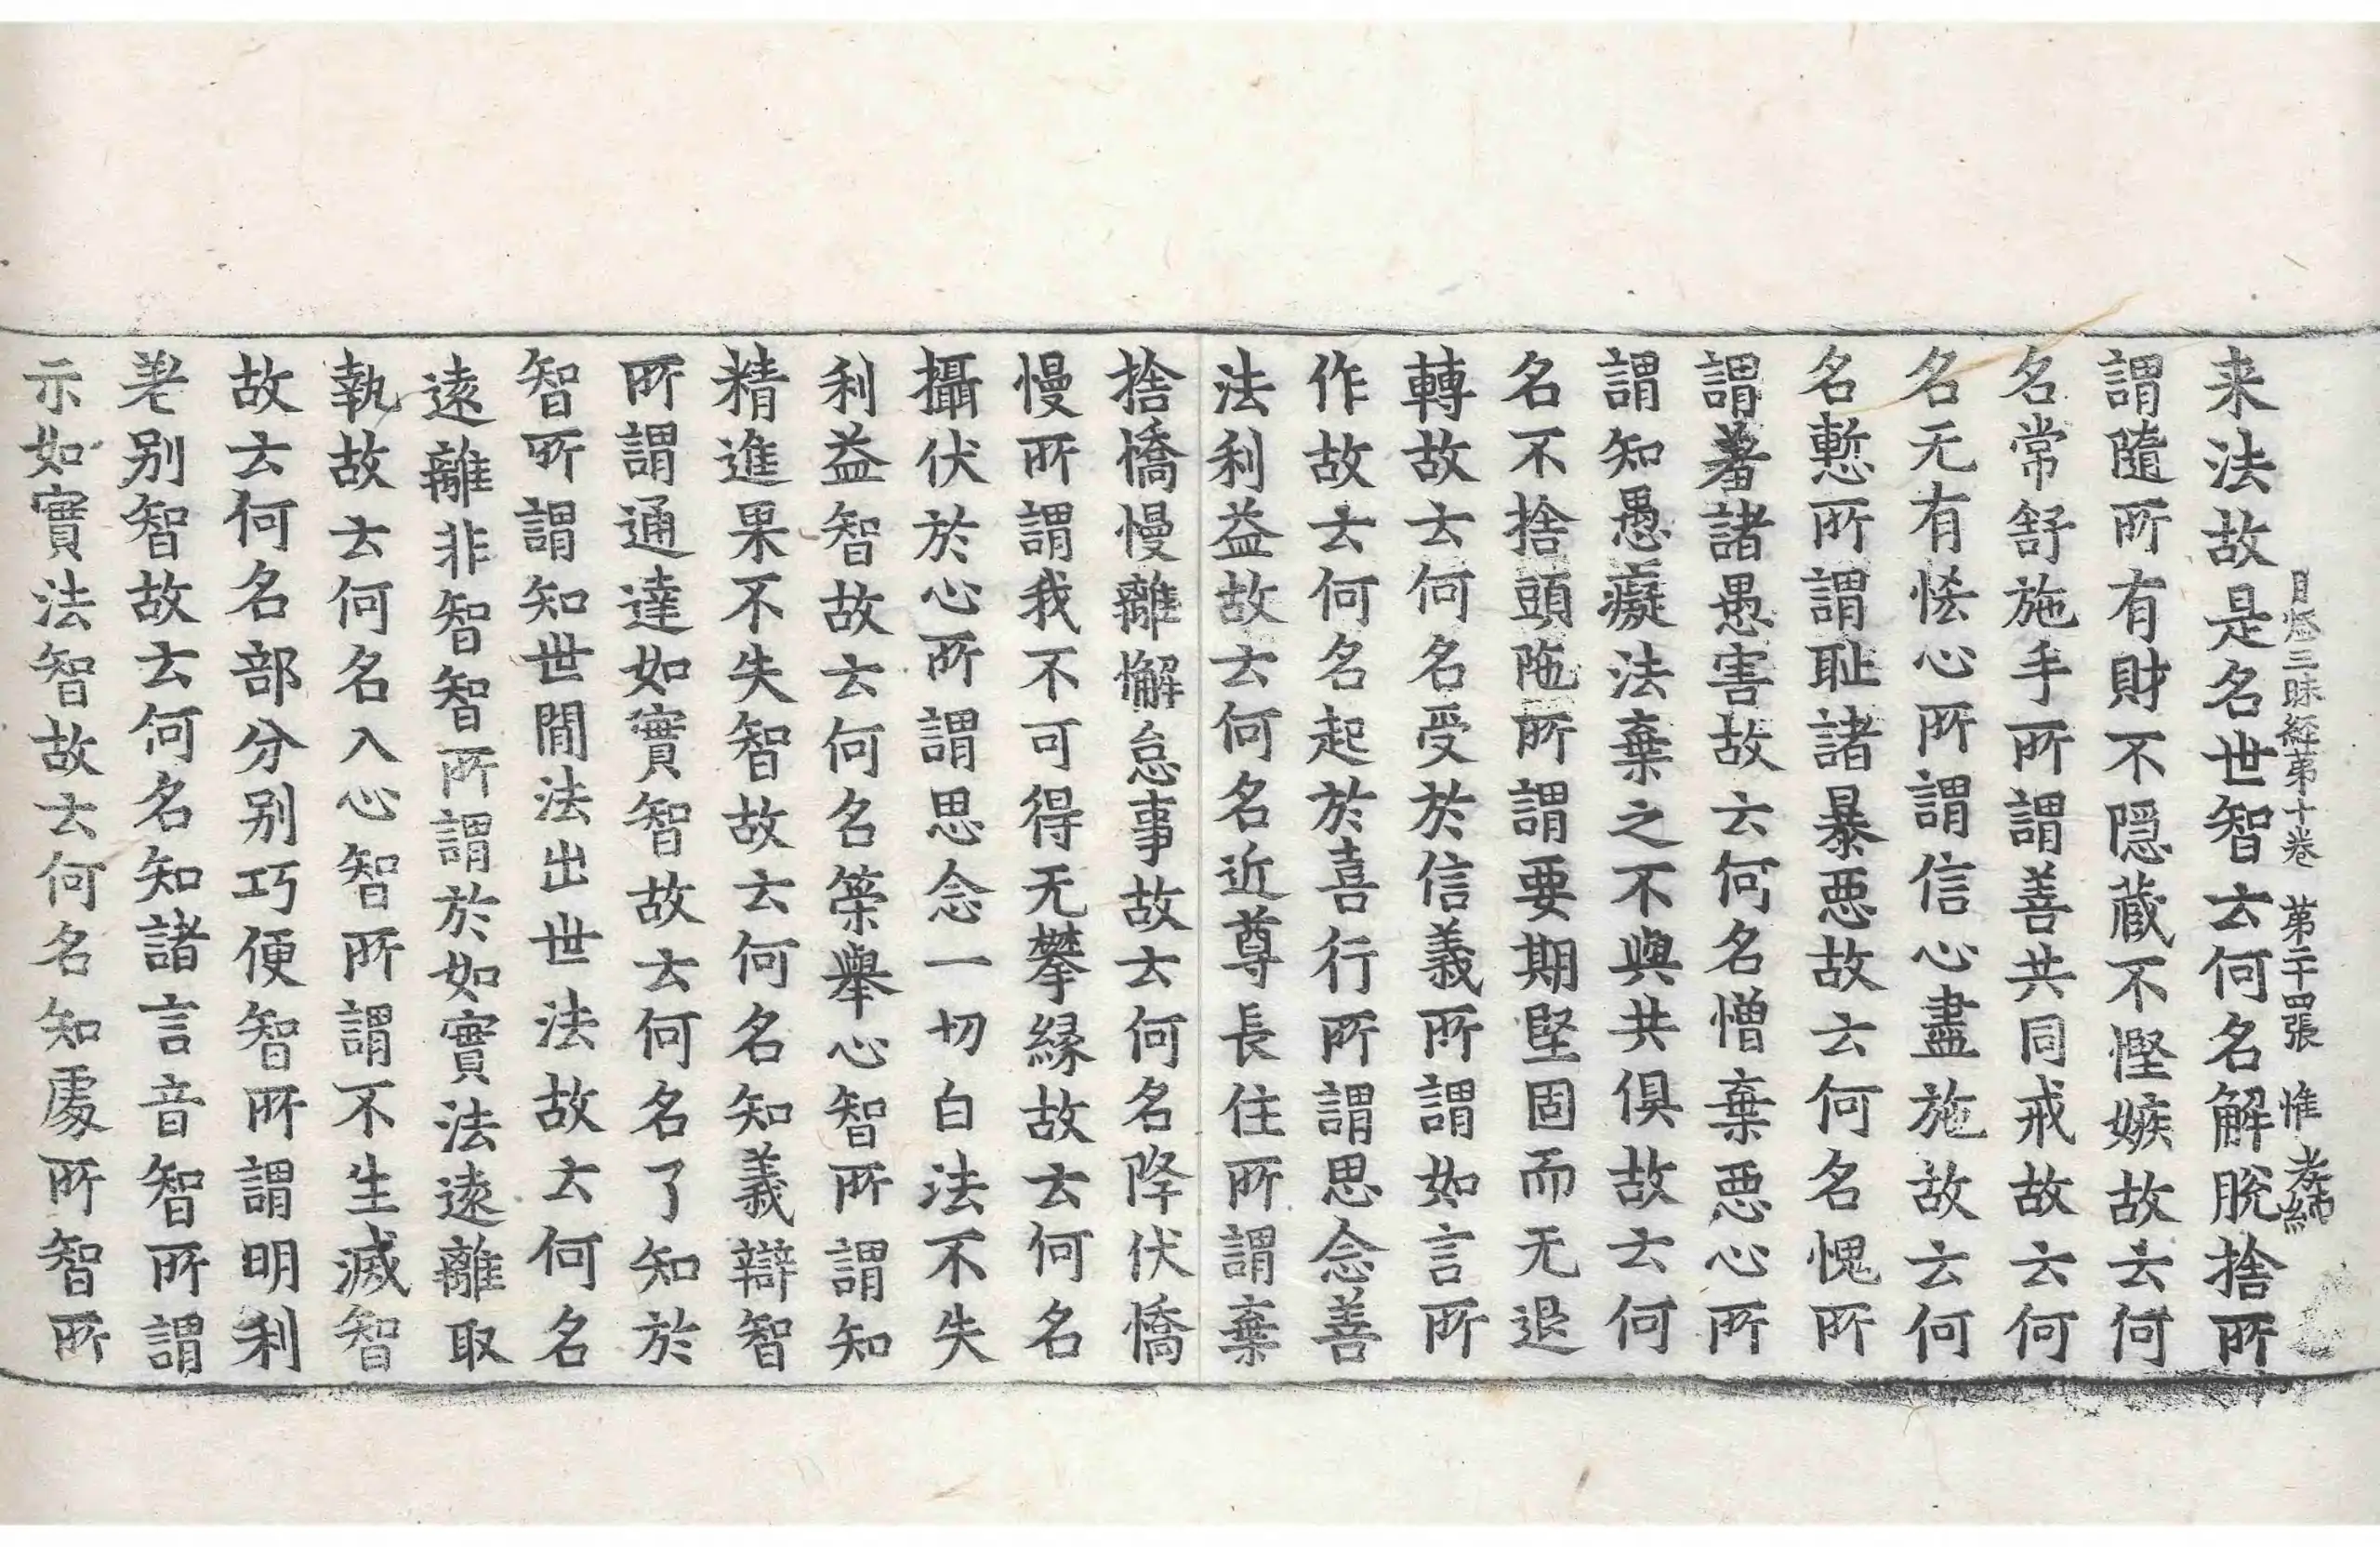 月燈三昧經第十卷 第二十四張 惟
来法故是名世智云何名解脫捨所
謂隨所有財不隱蔵不慳嫉故云何
名常舒施手所謂善共同戒故云何
名无有悋心所謂信心盡施故云何
名慙所謂耻諸暴惡故云何名愧所
謂羞諸愚害故云何名憎棄惡心所
謂知愚癡法棄之不與共俱故云何
名不捨頭陁所謂要期堅固而无退
轉故云何名受於信義所謂如言所
作故云何名起於喜行所謂思念善
法利益故云何名近尊長住所謂棄
捨憍慢離懈怠事故云何名降伏憍
慢所謂我不可得无攀緣故云何名
攝伏於心所謂思念一切白法不失
利益智故云何名榮舉心智所謂知
精進果不失智故云何名知義辯智
所謂通達如實智故云何名了知於
智所謂知世間法出世法故云何名
遠離非智智所謂於如實法遠離取
執故云何名入心智所謂不生滅智
故云何名部分別巧便智所謂明利
差別智故云何名知諸言音智所謂
示如實法智故云何名知處所智所